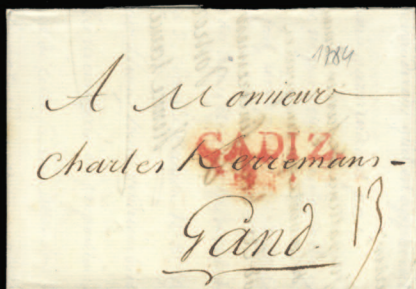 1784
A Monsieur
CADIZ
Charles Kerremans -
Gand. 13